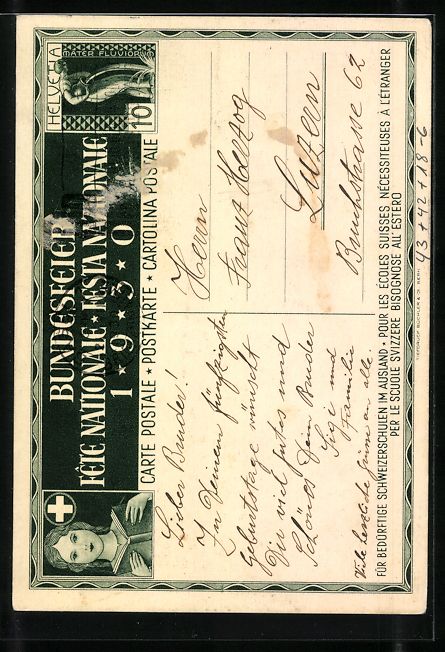 BUNDESFEIER
FÊTE NATIONALE • FESTA NAZIONALE
1 * 9 * 3 * 0
HELVETIA
MATER FLUVIORUM
10
CARTE POSTALE • POSTKARTE • CARTOLINA POSTALE
Lieber Bruder!
Zu Deinem fünfzigsten
Geburtstage wünscht
Dir viel gutes und
Schönes Dein Bruder
Sigi und
Familie
Viele herzliche Grüsse an alle.
Herrn
Franz Herzog
Luzern
Bruchstrasse 62
FÜR BEDÜRFTIGE SCHWEIZERSCHULEN IM AUSLAND • POUR LES ÉCOLES SUISSES NÉCESSITEUSES À L'ÉTRANGER
PER LE SCUOLE SVIZZERE BISOGNOSE ALL'ESTERO
TIEFDRUCK BÜCHLER & Co BERN
43+42+18-6